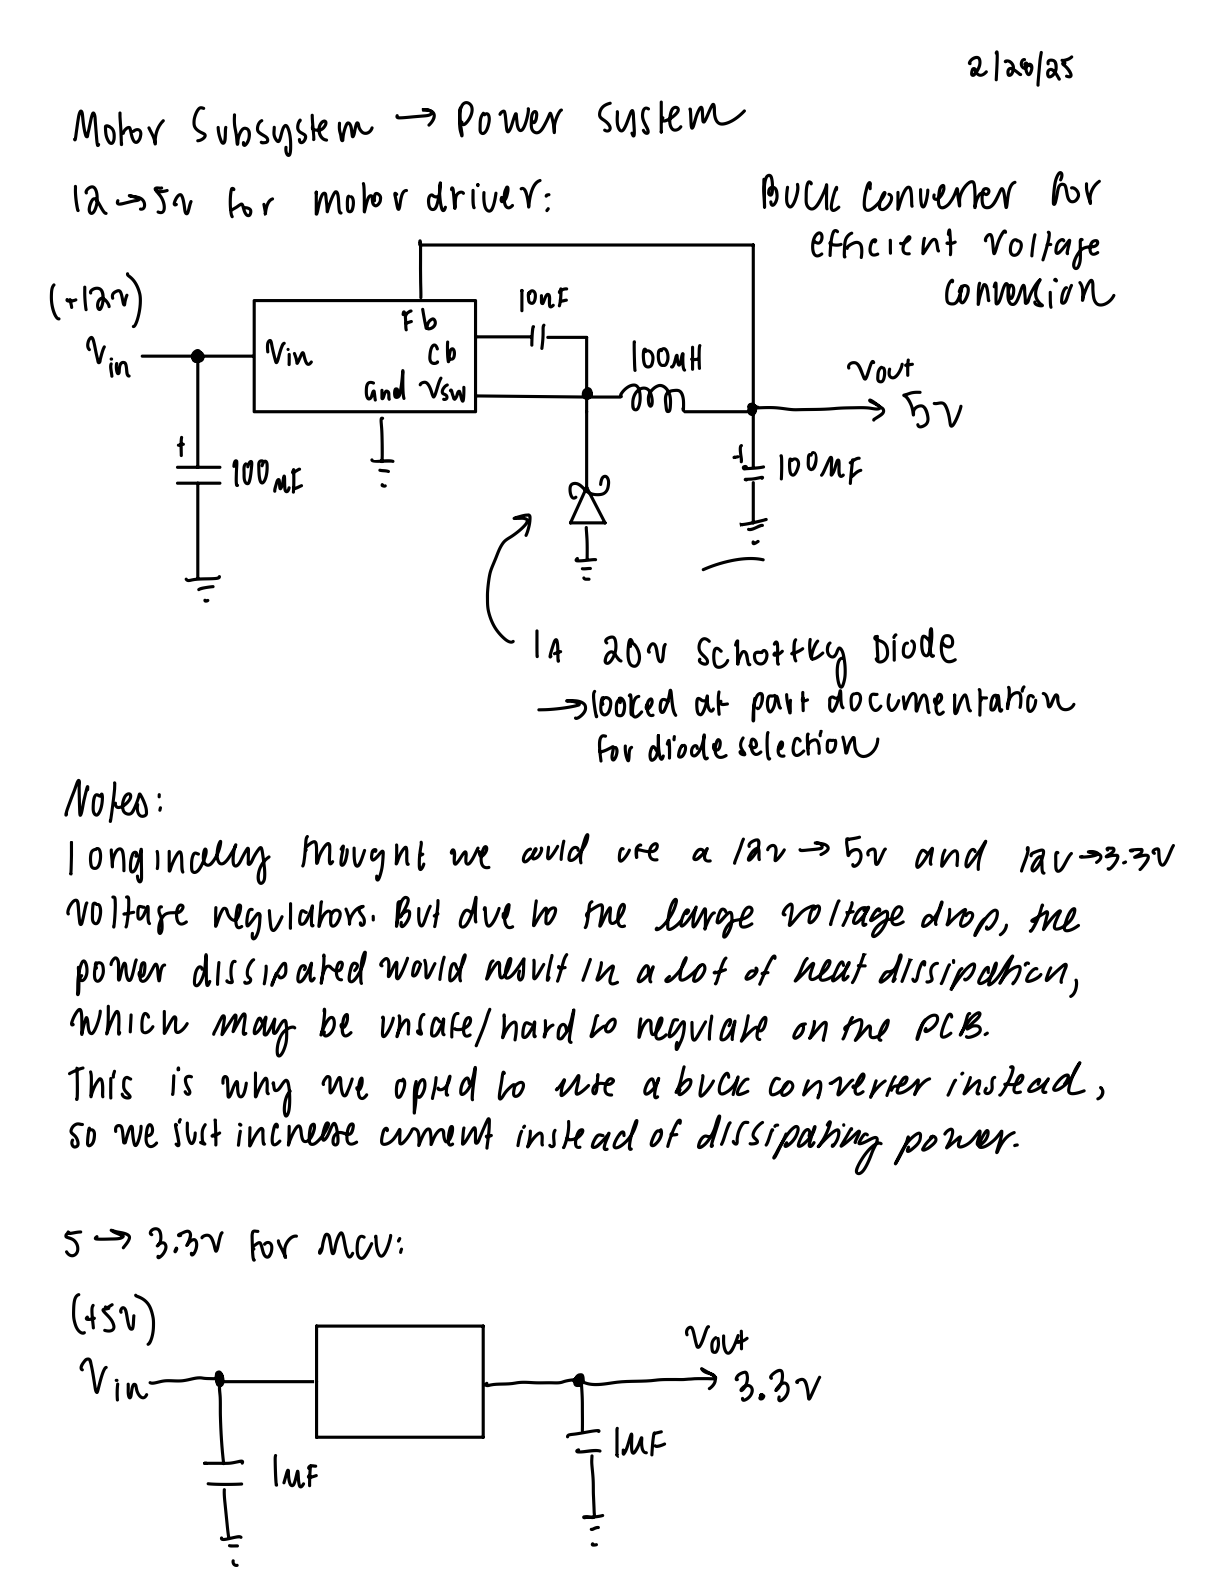 2/20/25
Motor Subsystem → Power System
12→5v for motor driver:
Buck converter for
efficient voltage
conversion
(+12v)
Vin
Vin
Fb
Cb
Gnd Vsw
10nF
100μH
Vout
5v
+
100μF
+
100μF
1A 20v Schottky Diode
→ looked at part documentation
for diode selection
Notes:
I originally thought we could use a 12v → 5v and 12v→3.3v
voltage regulators. But due to the large voltage drop, the
power dissipated would result in a lot of heat dissipation,
which may be unsafe/hard to regulate on the PCB.
This is why we opted to use a buck converter instead,
so we just increase current instead of dissipating power.
5 → 3.3v for MCU:
(+5v)
Vin
Vout
3.3v
1μF
1μF